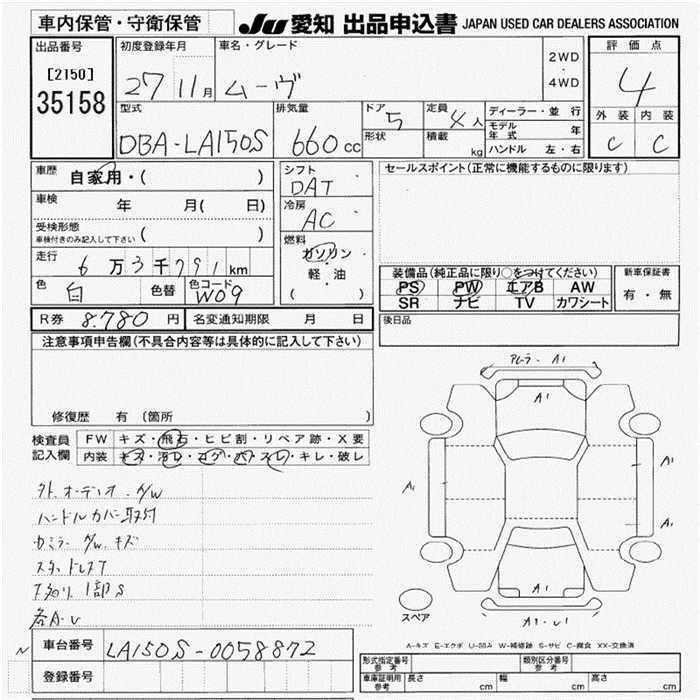 車内保管・守衛保管
JU 愛知 出品申込書 JAPAN USED CAR DEALERS ASSOCIATION
出品番号
[2150]
35158
初度登録年月
27 11月
車名・グレード
ムーヴ
2WD
・
4WD
評価点
4
外装 内装
C C
型式
DBA-LA150S
排気量
660cc
ドア 5
形状
定員 4人
積載 kg
ディーラー・並行
モデル年式 年
ハンドル 左・右
車歴 自家用・( )
車検 年 月( 日)
受検形態
車検付きのみ記入して下さい ( )
走行 6万3千791km
色 白 色替 色コード W09
シフト
DAT
冷房
AC
燃料
ガソリン
・
軽・油
( )
セールスポイント(正常に機能するものに限ります)
装備品(純正品に限り○をつけてください)
PS PW エアB AW
SR ナビ TV カワシート
新車保証書
有・無
R券 8.780円 名変通知期限 月 日
後日品
注意事項申告欄(不具合内容等は具体的に記入して下さい)
修復歴 有(箇所 )
検査員記入欄
FW キズ・飛石・ヒビ割・リペア跡・X要
内装 キズ・汚レ・コゲ・穴・スレ・キレ・破レ
外.オーディオ.
ハンドルカバー取付
キズ
スタッドレスT
下廻り1部S
各A・U
A1
A1
A1
A1
A1
A1
A1・U1
スペア
A-キズ E-エクボ U-凹み W-補修跡 S-サビ C-腐食 XX-交換済
N
車台番号 LA150S-0058872
登録番号
形式指定番号 参考 類別区分番号 参考
車庫証明用 参考 長さ cm 幅 cm 高さ cm